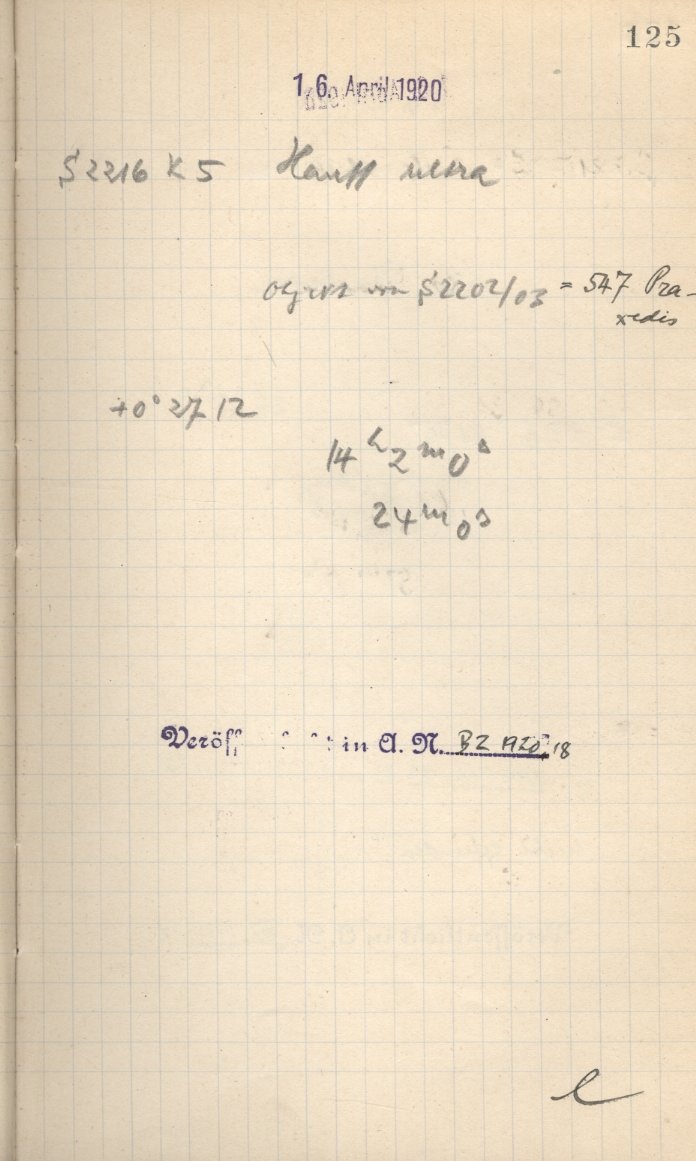 125
16. April 1920
S 2216 K 5 Hauff ultra
Objekt von S 2202/03 = 547 Pra-
xedis
+0° 2712
14ʰ 2ᵐ 0ˢ
24ᵐ 0ˢ
in A. N. BZ 1920, 18